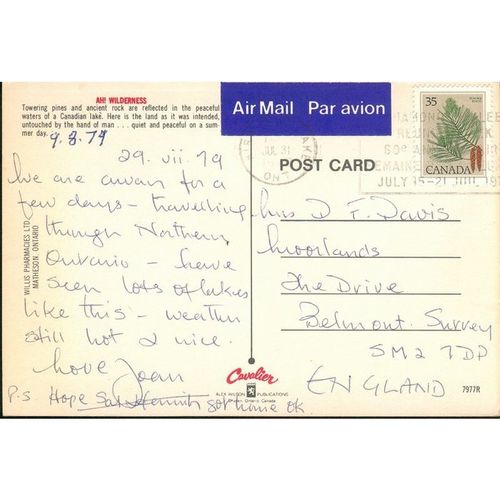 AH! WILDERNESS
Towering pines and ancient rock are reflected in the peaceful
waters of a Canadian lake. Here is the land as it was intended,
untouched by the hand of man . . . quiet and peaceful on a sum-
mer day.
9.8.79
29. vii. 79
We are away for a
few days - travelling
through Northern
Ontario - have
seen lots of lakes
like this - weather
still hot & nice.
Love Joan
P.S Hope got home ok
WILLIS PHARMACIES LTD.
MATHESON, ONTARIO
Air Mail Par avion
35
CANADA
JUL 31
ONT
60e
JULY 15-21 JUIL
POST CARD
Mrs D F Davis
Moorlands
The Drive
Belmont. Surrey
SM2 7DP
ENGLAND
Cavalier
ALEX WILSON PUBLICATIONS
Dryden, Ontario Canada
7977R